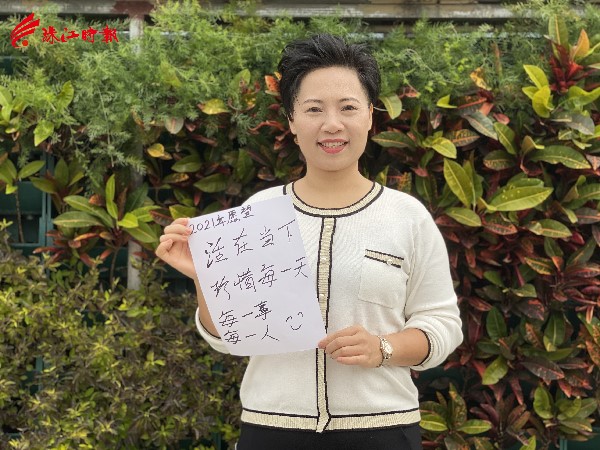 珠江时报
2021年愿望
活在当下
珍惜每一天
每一事
每一人